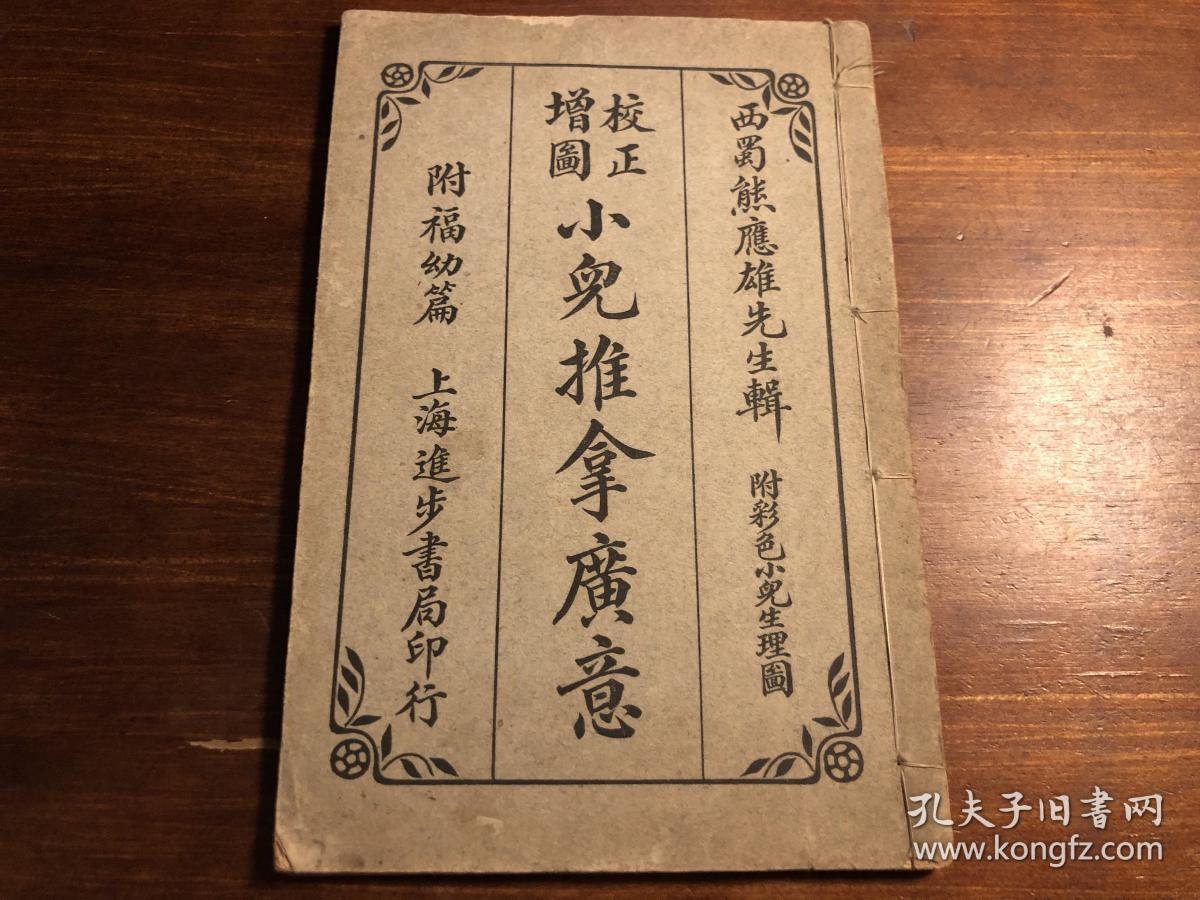 西蜀熊應雄先生輯 附彩色小兒生理圖
校正
增圖
小兒推拿廣意
附福幼篇 上海進步書局印行
孔夫子旧书网
www.kongfz.com